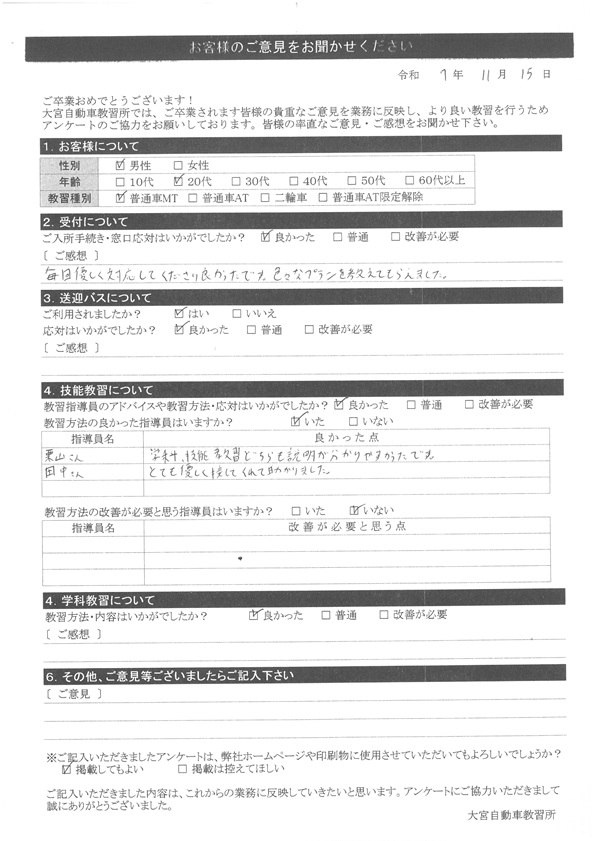 お客様のご意見をお聞かせください
令和 7 年 11 月 15 日
ご卒業おめでとうございます！
大宮自動車教習所では、ご卒業されます皆様の貴重なご意見を業務に反映し、より良い教習を行うため
アンケートのご協力をお願いしております。皆様の率直なご意見・ご感想をお聞かせ下さい。
1. お客様について
性別 ☑ 男性 □ 女性
年齢 □ 10代 ☑ 20代 □ 30代 □ 40代 □ 50代 □ 60代以上
教習種別 ☑ 普通車MT □ 普通車AT □ 二輪車 □ 普通車AT限定解除
2. 受付について
ご入所手続き・窓口応対はいかがでしたか？ ☑ 良かった □ 普通 □ 改善が必要
［ ご感想 ］
毎日優しく対応してくださり良かったです。色々なプランを教えてもらえました。
3. 送迎バスについて
ご利用されましたか？ ☑ はい □ いいえ
応対はいかがでしたか？ ☑ 良かった □ 普通 □ 改善が必要
［ ご感想 ］
4. 技能教習について
教習指導員のアドバイスや教習方法・応対はいかがでしたか？ ☑ 良かった □ 普通 □ 改善が必要
教習方法の良かった指導員はいますか？ ☑ いた □ いない
指導員名 良かった点
栗山さん 学科、技能教習どちらも説明が分かりやすかったです。
田中さん とても優しく接してくれて助かりました。
教習方法の改善が必要と思う指導員はいますか？ □ いた ☑ いない
指導員名 改善が必要と思う点
4. 学科教習について
教習方法・内容はいかがでしたか？ ☑ 良かった □ 普通 □ 改善が必要
［ ご感想 ］
6. その他、ご意見等ございましたらご記入下さい
［ ご意見 ］
※ご記入いただきましたアンケートは、弊社ホームページや印刷物に使用させていただいてもよろしいでしょうか？
☑ 掲載してもよい □ 掲載は控えてほしい
ご記入いただきました内容は、これからの業務に反映していきたいと思います。アンケートにご協力いただきまして
誠にありがとうございました。
大宮自動車教習所